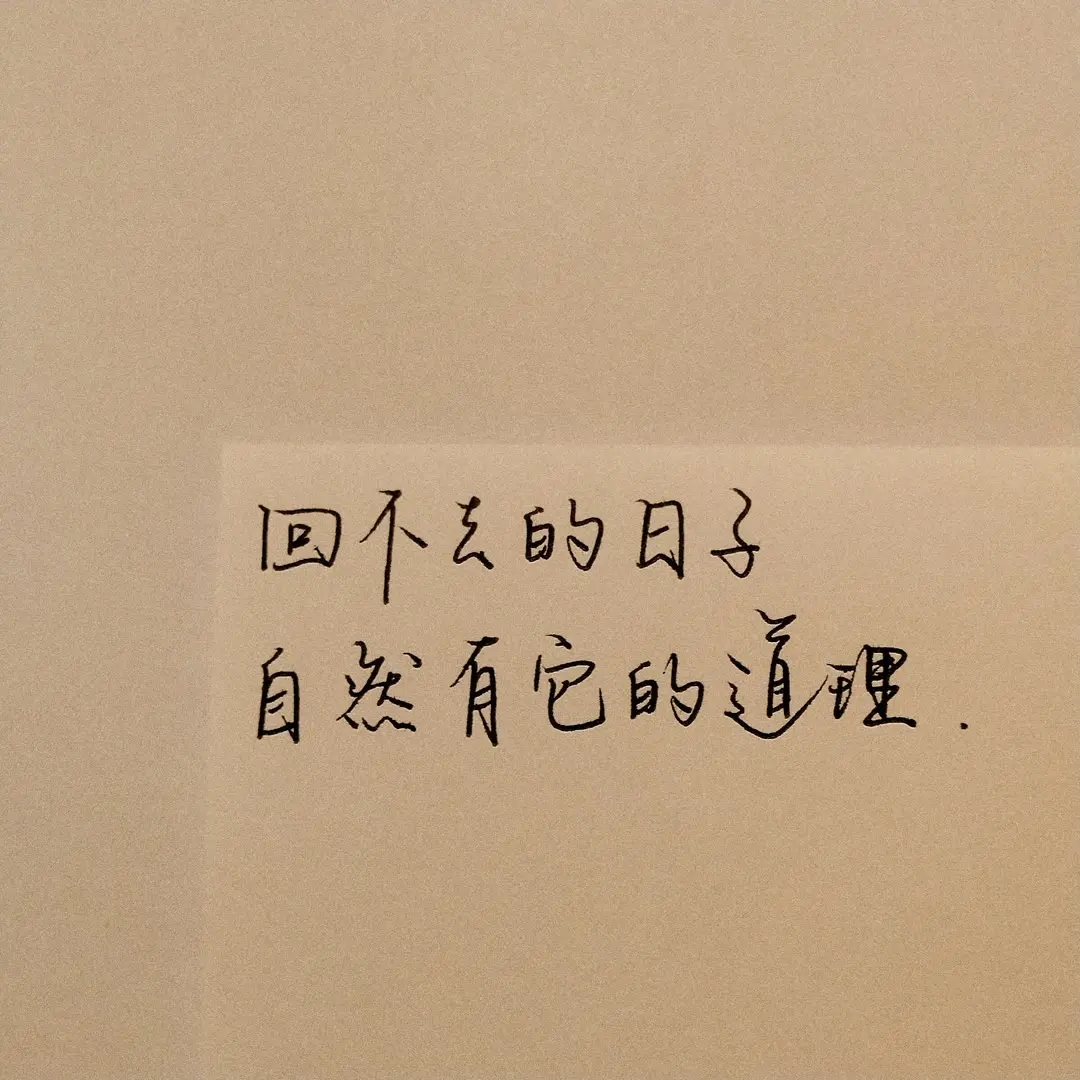 回不去的日子
自然有它的道理.